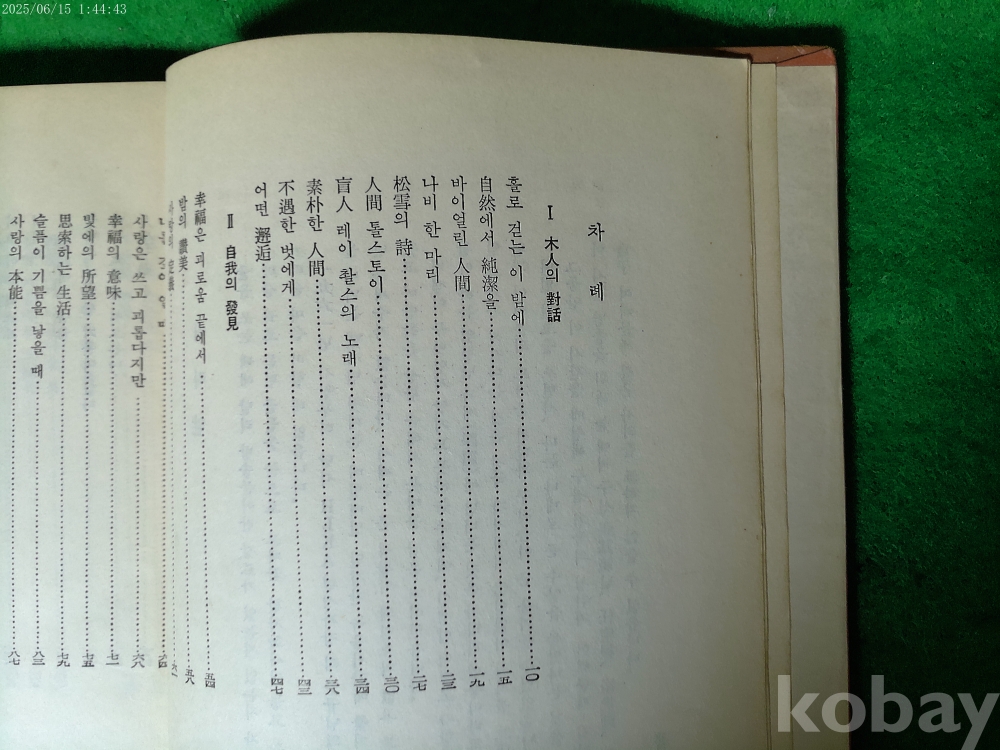 2025/06/15 1:44:43
차 례
Ⅰ 木人의 對話
홀로 걷는 이 밤에……一〇
自然에서 純潔을……一五
바이얼린 人間……一九
나비 한 마리……二三
松雪의 詩……二七
人間 톨스토이……三〇
盲人 레이 촬스의 노래……三四
素朴한 人間……三八
不遇한 벗에게……四三
어떤 邂逅……四七
Ⅱ 自我의 發見
幸福은 괴로움 끝에서……五四
밤의 讚美……五八
六一
六四
사랑은 쓰고 괴롭다지만……六八
幸福의 意味……七一
빛에의 所望……七五
思索하는 生活……七九
슬픔이 기름을 낳을 때……八三
사랑의 本能……八七
kobay